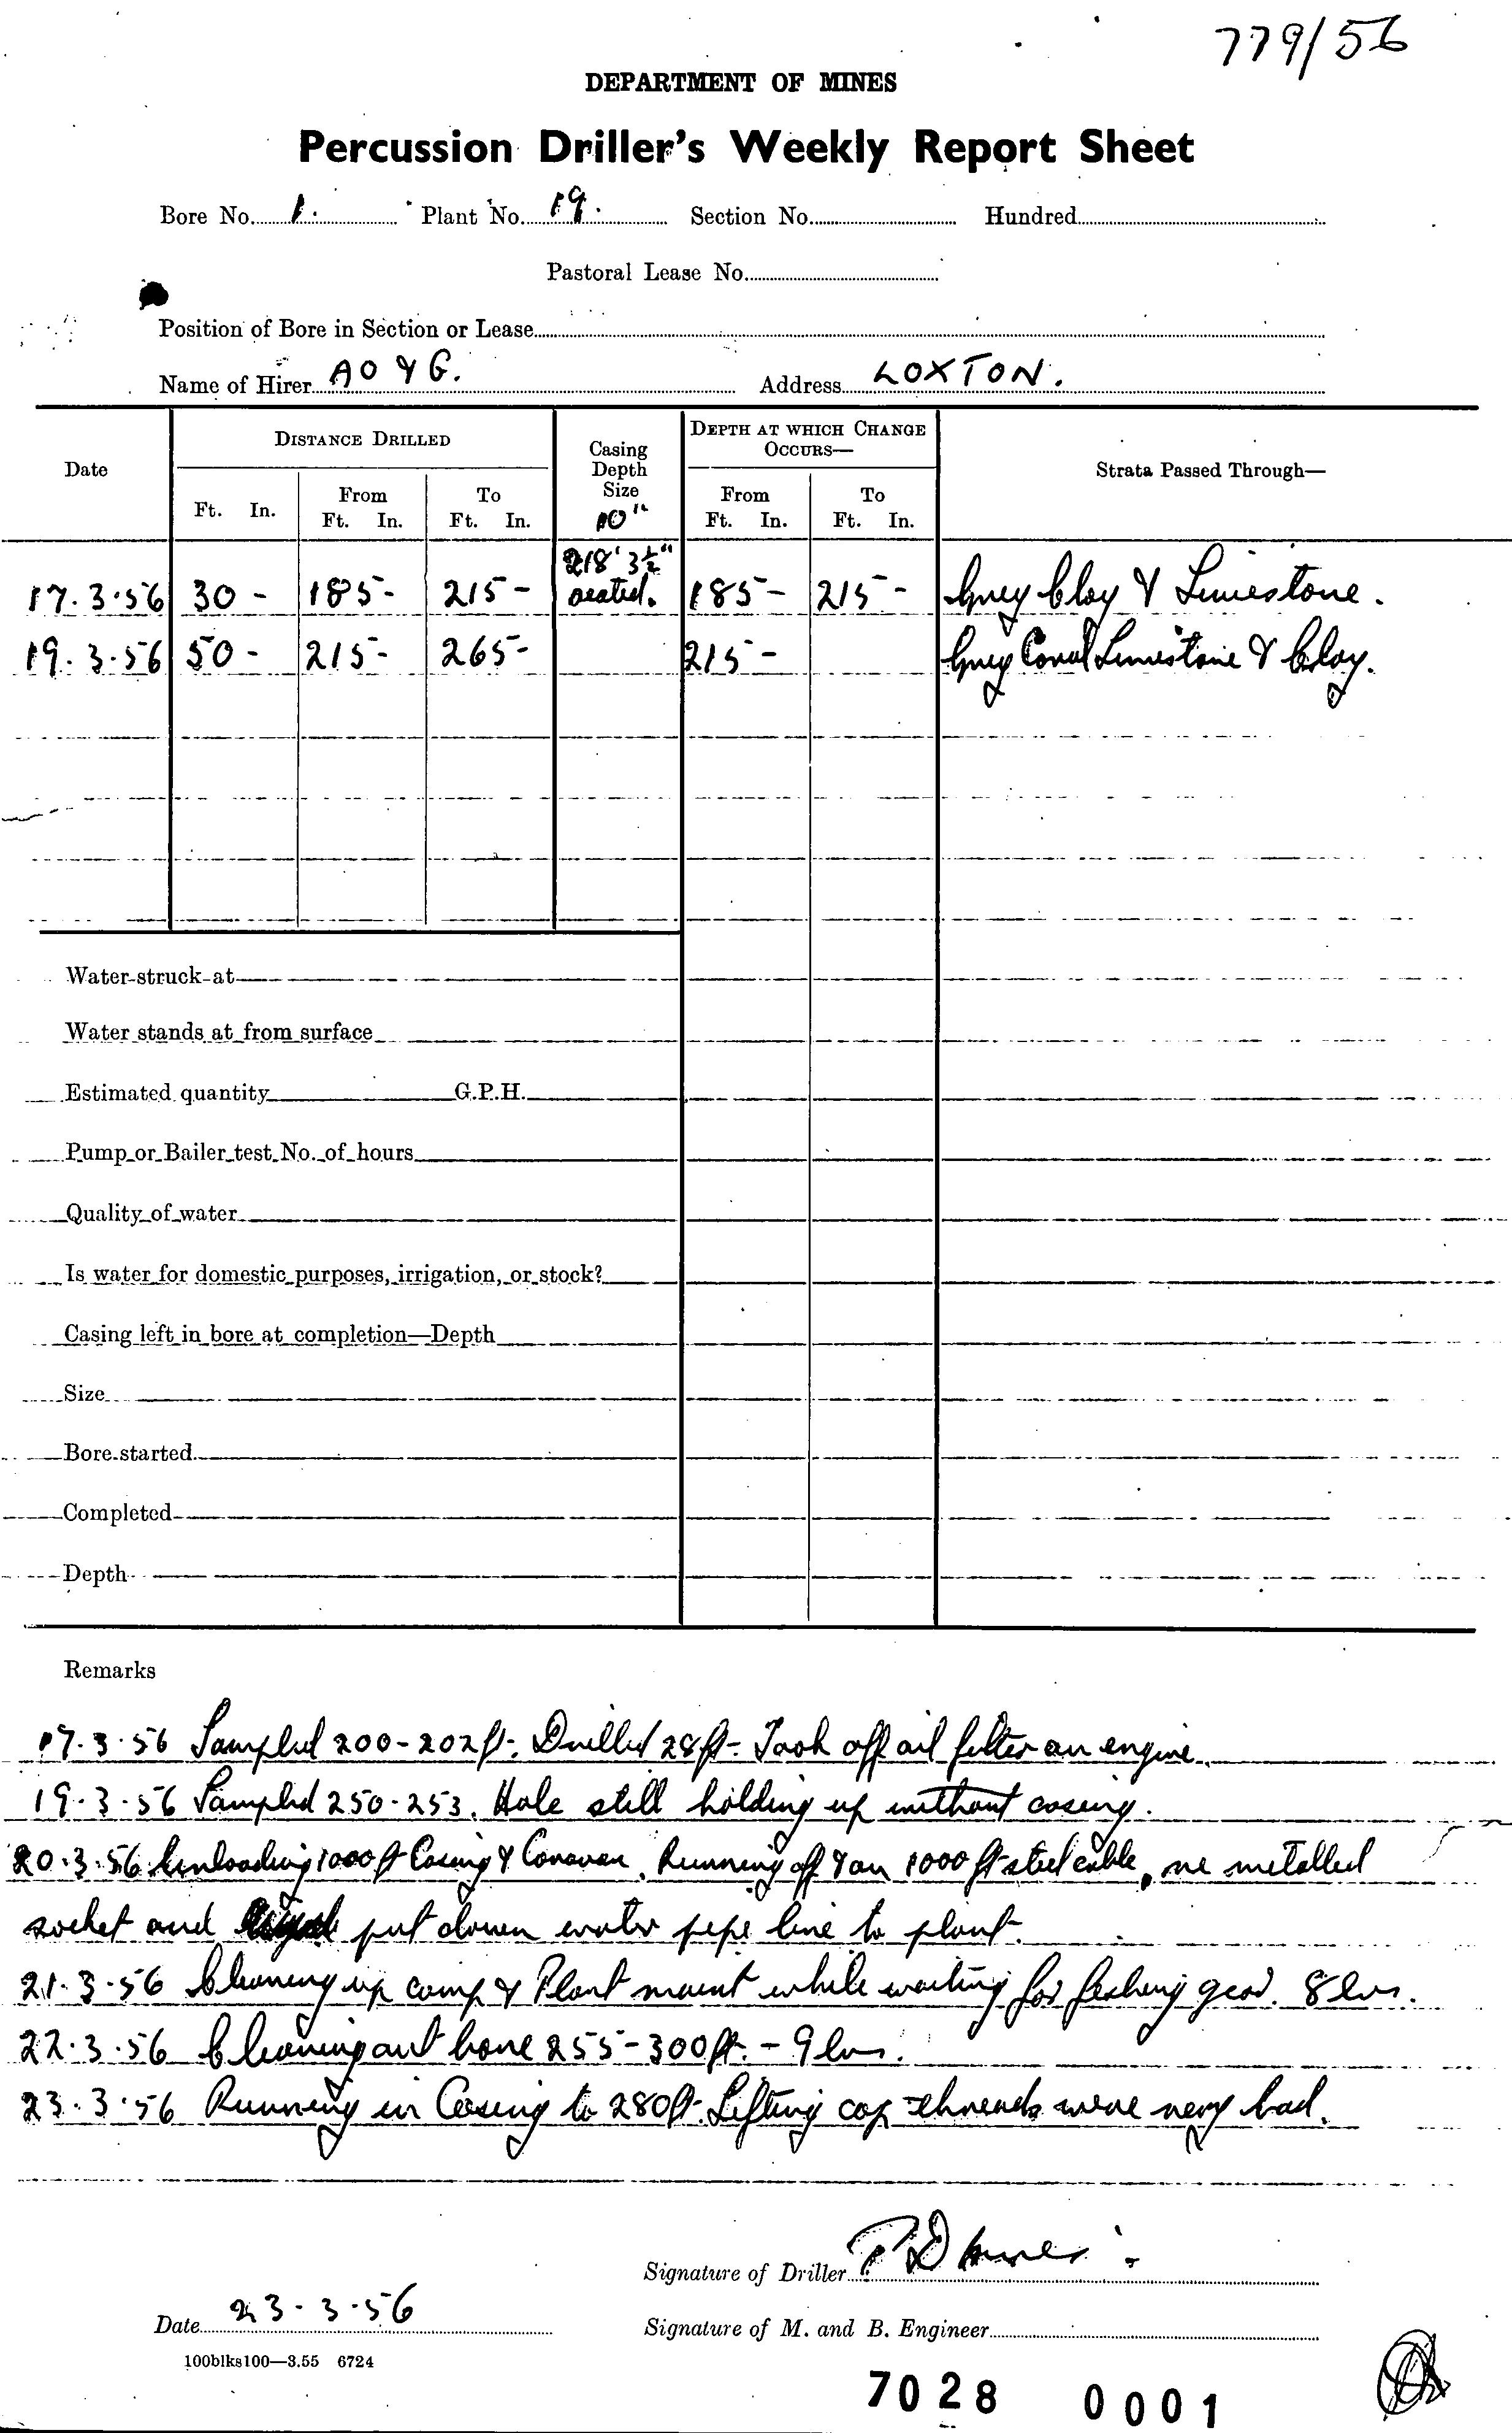 779/56
DEPARTMENT OF MINES
Percussion Driller's Weekly Report Sheet
Bore No. 1. Plant No. 19. Section No. Hundred
Pastoral Lease No.
Position of Bore in Section or Lease
Name of Hirer AO & G. Address LOXTON.
Date
DISTANCE DRILLED
Ft. In.
From Ft. In.
To Ft. In.
Casing Depth Size 10"
DEPTH AT WHICH CHANGE OCCURS—
From Ft. In.
To Ft. In.
Strata Passed Through—
218' 3½"
17.3.56 30 - 185- 215- seated. 185- 215- Grey Clay & Limestone.
19.3.56 50- 215- 265- 215- Grey Coral Limestone & Clay.
Water struck at
Water stands at from surface
Estimated quantity G.P.H.
Pump or Bailer test No. of hours
Quality of water
Is water for domestic purposes, irrigation, or stock?
Casing left in bore at completion—Depth
Size
Bore started
Completed
Depth
Remarks
17.3.56 Sampled 200-202ft. Drilled 28ft- Took off oil filter on engine.
19.3.56 Sampled 250-253. Hole still holding up without casing.
20.3.56 Unloading 1000ft Casing & Caravan. Running off & on 1000 ft steel cable, re metalled
socket and put down water pipe line to plant.
21.3.56 Cleaning up camp & Plant maint while waiting for fishing gear. 8 hrs.
22.3.56 Cleaning out bore 255-300ft. - 9 hrs.
23.3.56 Running in Casing to 280ft. Lifting cap threads were very bad.
Signature of Driller
Date 23-3-56
Signature of M. and B. Engineer
100blks100—3.55 6724
7028 0001